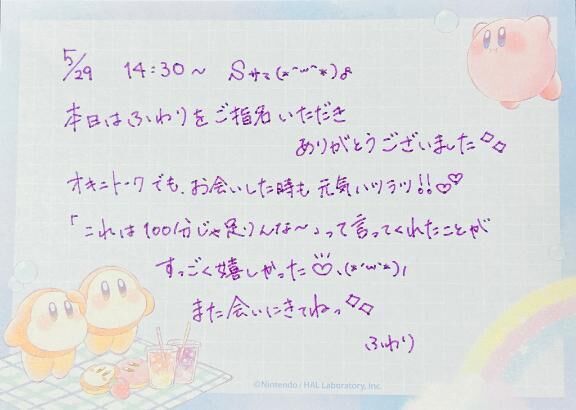 5/29 14:30～ Sサマ(*´ω`*)♂
本日はふわりをご指名いただき
ありがとうございました◇◇
オキニトークでも、お会いした時も元気いツラツ!!♡♡
「これは100分じゃ足りんな～」って言ってくれたことが
すっごく嬉しかった♡、(*´ω`*)ノ
また会いにきてねっ◇◇
ふわり
©Nintendo / HAL Laboratory, Inc.